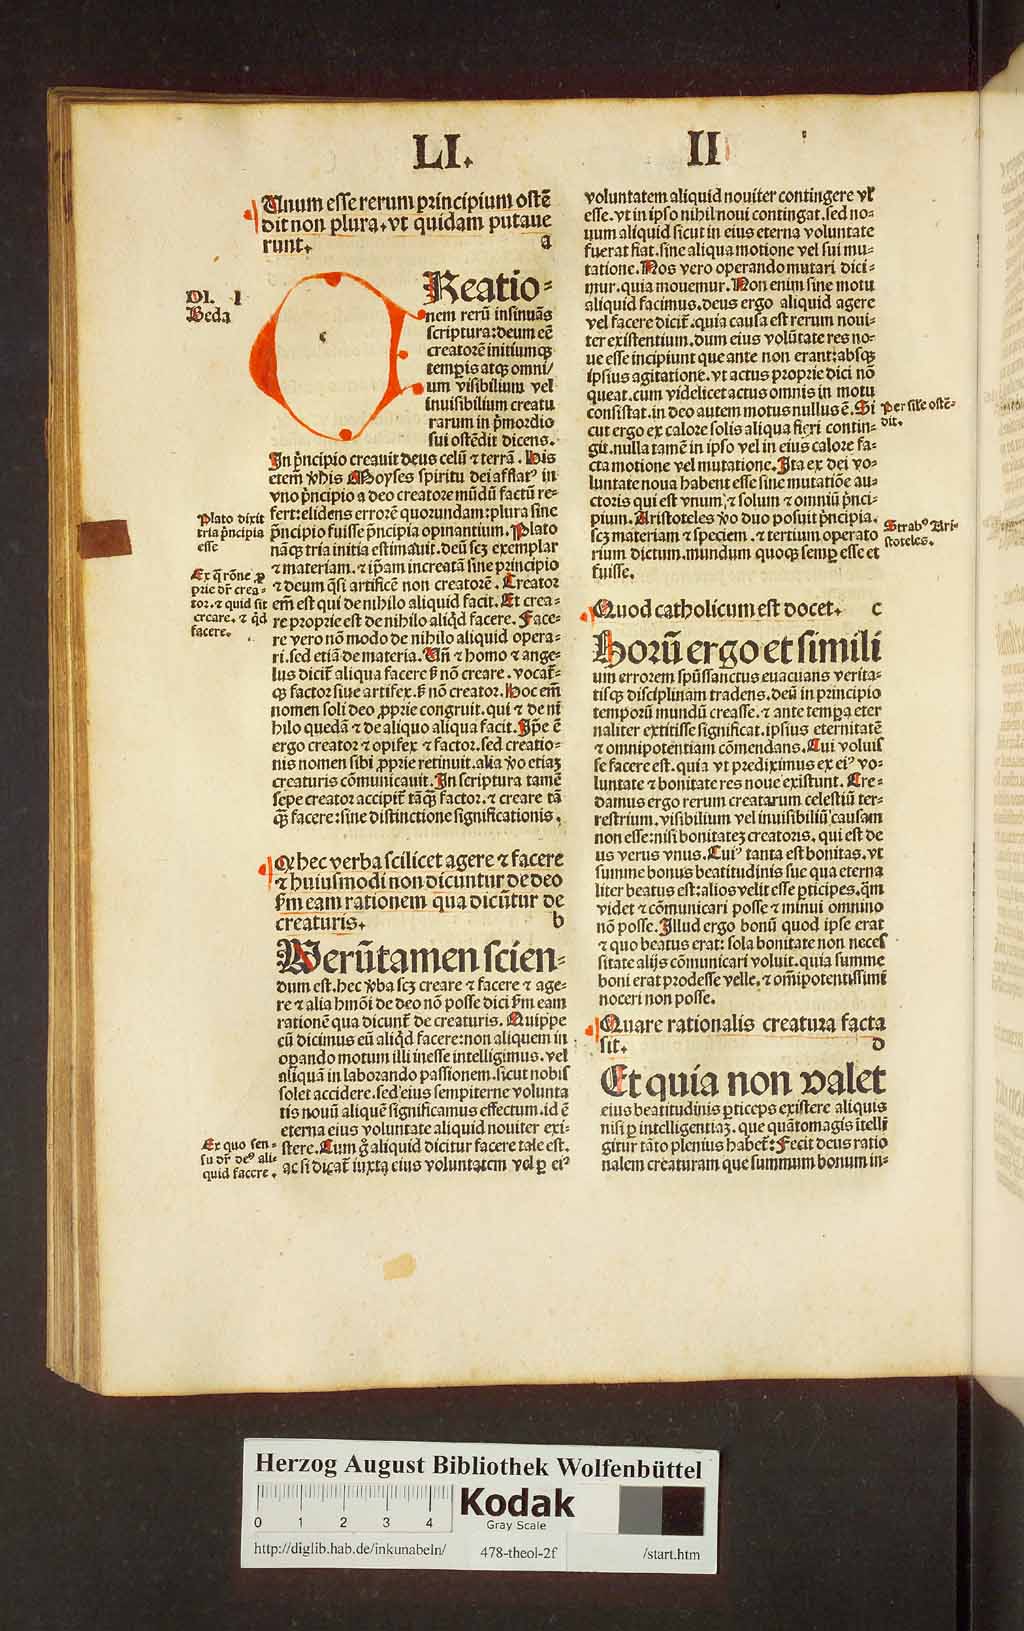 LI. II
Unum esse rerum principium ostē
dit non plura. vt quidam putaue
runt. a
DI. I
Beda
CReatio-
nem rerū insinuās
scriptura: deum eē
creatorē initiumqꝫ
temꝑis atqꝫ omni/
um visibilium vel
inuisibilium creatu
rarum in p̄mordio
sui ostēdit dicens.
In p̄ncipio creauit deus celū ⁊ terrā. His
etem̄ v̄bis Moyses spiritu dei afflatꝰ in
vno p̄ncipio a deo creatore mūdū factū re-
fert: elidens errorē quorundam: plura sine
p̄ncipio fuisse p̄ncipia opinantium. Plato
nāqꝫ tria initia estimauit. deū scꝫ exemplar
⁊ materiam. ⁊ ip̄am increatā sine principio
⁊ deum q̄si artificē non creatorē. Creator
em̄ est qui de nihilo aliquid facit. Et crea-
re proprie est de nihilo aliq̇d facere. Face-
re vero nō modo de nihilo aliquid opera-
ri. sed etiā de materia. Un̄ ⁊ homo ⁊ ange-
lus dicit̄ aliqua facere ꝫ nō creare. vocat̄-
qꝫ factor siue artifex. ꝫ nō creator. Hoc em̄
nomen soli deo ꝓprie congruit. qui ⁊ de ni
hilo quedā ⁊ de aliquo aliqua facit. Ip̄e ē
ergo creator ⁊ opifex ⁊ factor. sed creatio-
nis nomen sibi ꝓprie retinuit. alia v̄o etiaꝫ
creaturis cōmunicauit. In scriptura tamē
sepe creator accipit̄ tāqꝫ factor. ⁊ creare tā
qꝫ facere: sine distinctione significationis.
Plato dixit
tria p̄ncipia
esse
Ex q̄ rōne ꝓ
prie dr̄ crea-
tor. ⁊ quid sit
creare. ⁊ q̇d
facere.
Q hec verba scilicet agere ⁊ facere
⁊ huiusmodi non dicuntur de deo
ẜm eam rationem qua dicūtur de
creaturis. b
Uerūtamen scien-
dum est. hec v̄ba scꝫ creare ⁊ facere ⁊ age-
re ⁊ alia hmōi de deo nō posse dici ẜm eam
rationē qua dicunt̄ de creaturis. Quippe
cū dicimus eū aliq̇d facere: non aliquem in
oꝑando motum illi inesse intelligimus. vel
aliquā in laborando passionem. sicut nobis
solet accidere. sed eius sempiterne volunta
tis nouū aliquē significamus effectum. id ē
eterna eius voluntate aliquid nouiter exi-
stere. Cum g̊ aliquid dicitur facere tale est.
ac si dicat̄ iuxta eius voluntatem vel ꝑ eiꝰ
Ex quo sen-
su dr̄ deꝰ ali-
quid facere.
voluntatem aliquid nouiter contingere vl̓
esse. vt in ipso nihil noui contingat. sed no-
uum aliquid sicut in eius eterna voluntate
fuerat fiat. sine aliqua motione vel sui mu-
tatione. Nos vero operando mutari dici-
mur. quia mouemur. Non enim sine motu
aliquid facimus. deus ergo aliquid agere
vel facere dicit̄. quia causa est rerum noui-
ter existentium. dum eius volūtate res no-
ue esse incipiunt que ante non erant: absqꝫ
ipsius agitatione. vt actus proprie dici nō
queat. cum videlicet actus omnis in motu
consistat. in deo autem motus nullus ē. Si
cut ergo ex calore solis aliqua fieri contin-
git. nulla tamē in ipso vel in eius calore fa-
cta motione vel mutatione. Ita ex dei vo-
luntate noua habent esse sine mutatiōe au-
ctoris qui est vnum, ⁊ solum ⁊ omniū p̄nci-
pium. Aristoteles v̄o duo posuit p̄ncipia.
scꝫ materiam ⁊ speciem. ⁊ tertium operato
rium dictum. mundum quoqꝫ semꝑ esse et
fuisse.
Per sil̓e ostē-
dit.
Strabꝰ Ari-
stoteles.
Quod catholicum est docet. c
Horū ergo et simili
um errorem spūssanctus euacuans verita-
tisqꝫ disciplinam tradens. deū in principio
temporū mundū creasse. ⁊ ante temꝑa eter
naliter extitisse significat. ipsius eternitatē
⁊ omnipotentiam cōmendans. Cui voluis
se facere est. quia vt prediximus ex eiꝰ vo-
luntate ⁊ bonitate res noue existunt. Cre-
damus ergo rerum creatarum celestiū ter-
restrium. visibilium vel inuisibiliū causam
non esse: nisi bonitateꝫ creatoris. qui est de
us verus vnus. Cuiꝰ tanta est bonitas. vt
summe bonus beatitudinis sue qua eterna
liter beatus est: alios velit esse ꝑticipes. q̄m
videt ⁊ cōmunicari posse ⁊ minui omnino
nō posse. Illud ergo bonū quod ipse erat
⁊ quo beatus erat: sola bonitate non neces
sitate alijs cōmunicari voluit. quia summe
boni erat prodesse velle. ⁊ om̄ipotentissimi
noceri non posse.
Quare rationalis creatura facta
sit. d
Et quia non valet
eius beatitudinis ꝑticeps existere aliquis
nisi ꝑ intelligentiaꝫ. que quātomagis ītelli
gitur tāto plenius habet̄: Fecit deus ratio
nalem creaturam que summum bonum in-
Herzog August Bibliothek Wolfenbüttel
0 1 2 3 4
Kodak
Gray Scale
http://diglib.hab.de/inkunabeln/ 478-theol-2f /start.htm